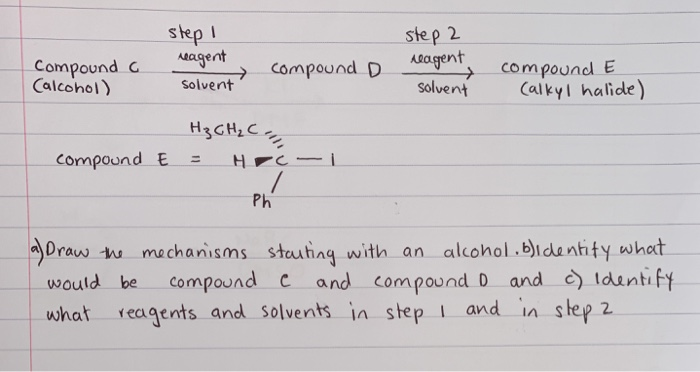 step 1 step 2
Compound C reagent compound D reagent compound E
(alcohol) solvent solvent (alkyl halide)
H3CH2C
compound E = H C — I
Ph
a) Draw the mechanisms starting with an alcohol. b) identify what
would be compound C and compound D and c) Identify
what reagents and solvents in step 1 and in step 2